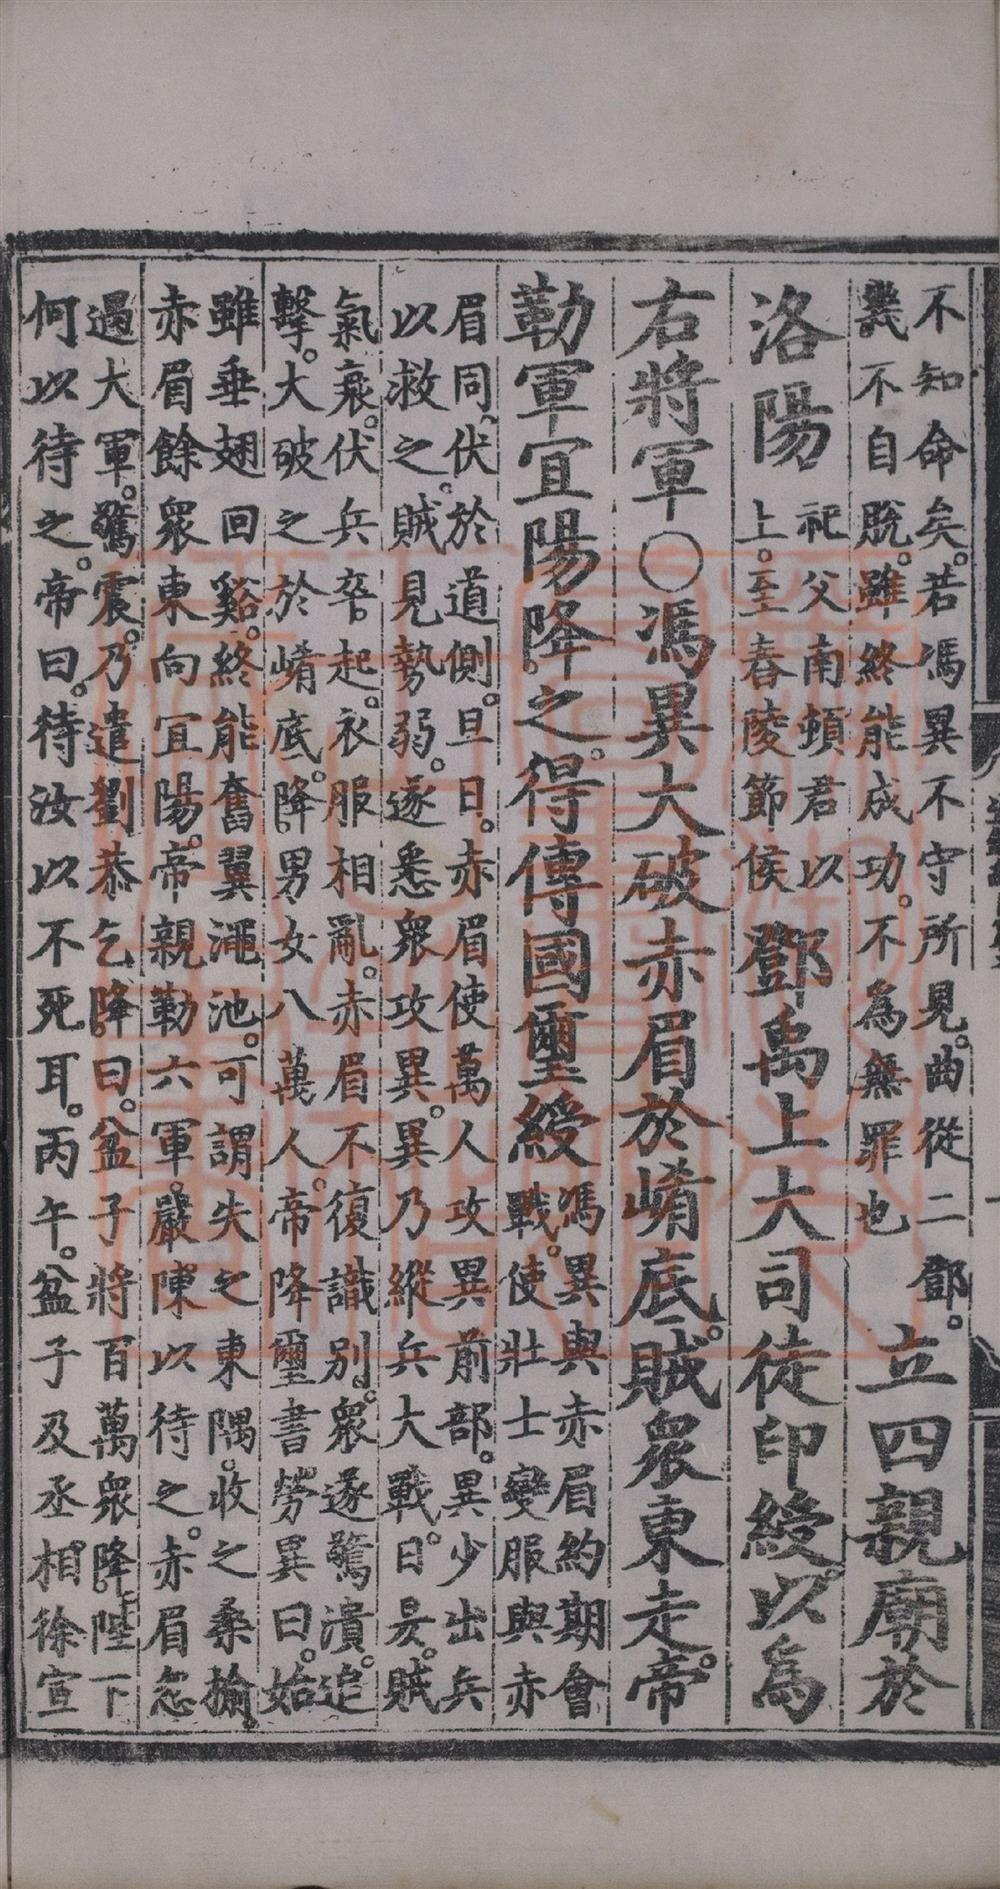 不知命矣。若馮異不守所見。曲從二鄧。
幾不自脫。雖終能成功。不為無罪也
立四親廟於
洛陽
祀父南頓君以
上。至舂陵節侯
鄧禹上大司徒印綬。以為
右將軍〇馮異大破赤眉於崤底。賊衆東走。帝
勒軍宜陽降之。得傳國璽綬
馮異與赤眉約期會
戰。使壯士變服與赤
眉同。伏於道側。旦日。赤眉使萬人攻異前部。異少出兵
以救之。賊見勢弱。遂悉衆攻異。異乃縱兵大戰。日昃。賊
氣衰。伏兵卒起。衣服相亂。赤眉不復識別。衆遂驚潰。追
擊。大破之於崤底。降男女八萬人。帝降璽書勞異曰。始
雖垂翅回谿。終能奮翼澠池。可謂失之東隅。收之桑榆。
赤眉餘衆東向宜陽。帝親勒六軍。嚴陳以待之。赤眉忽
過大軍。驚震。乃遣劉恭乞降曰。盆子將百萬衆降。陛下
何以待之。帝曰。待汝以不死耳。丙午。盆子及丞相徐宣